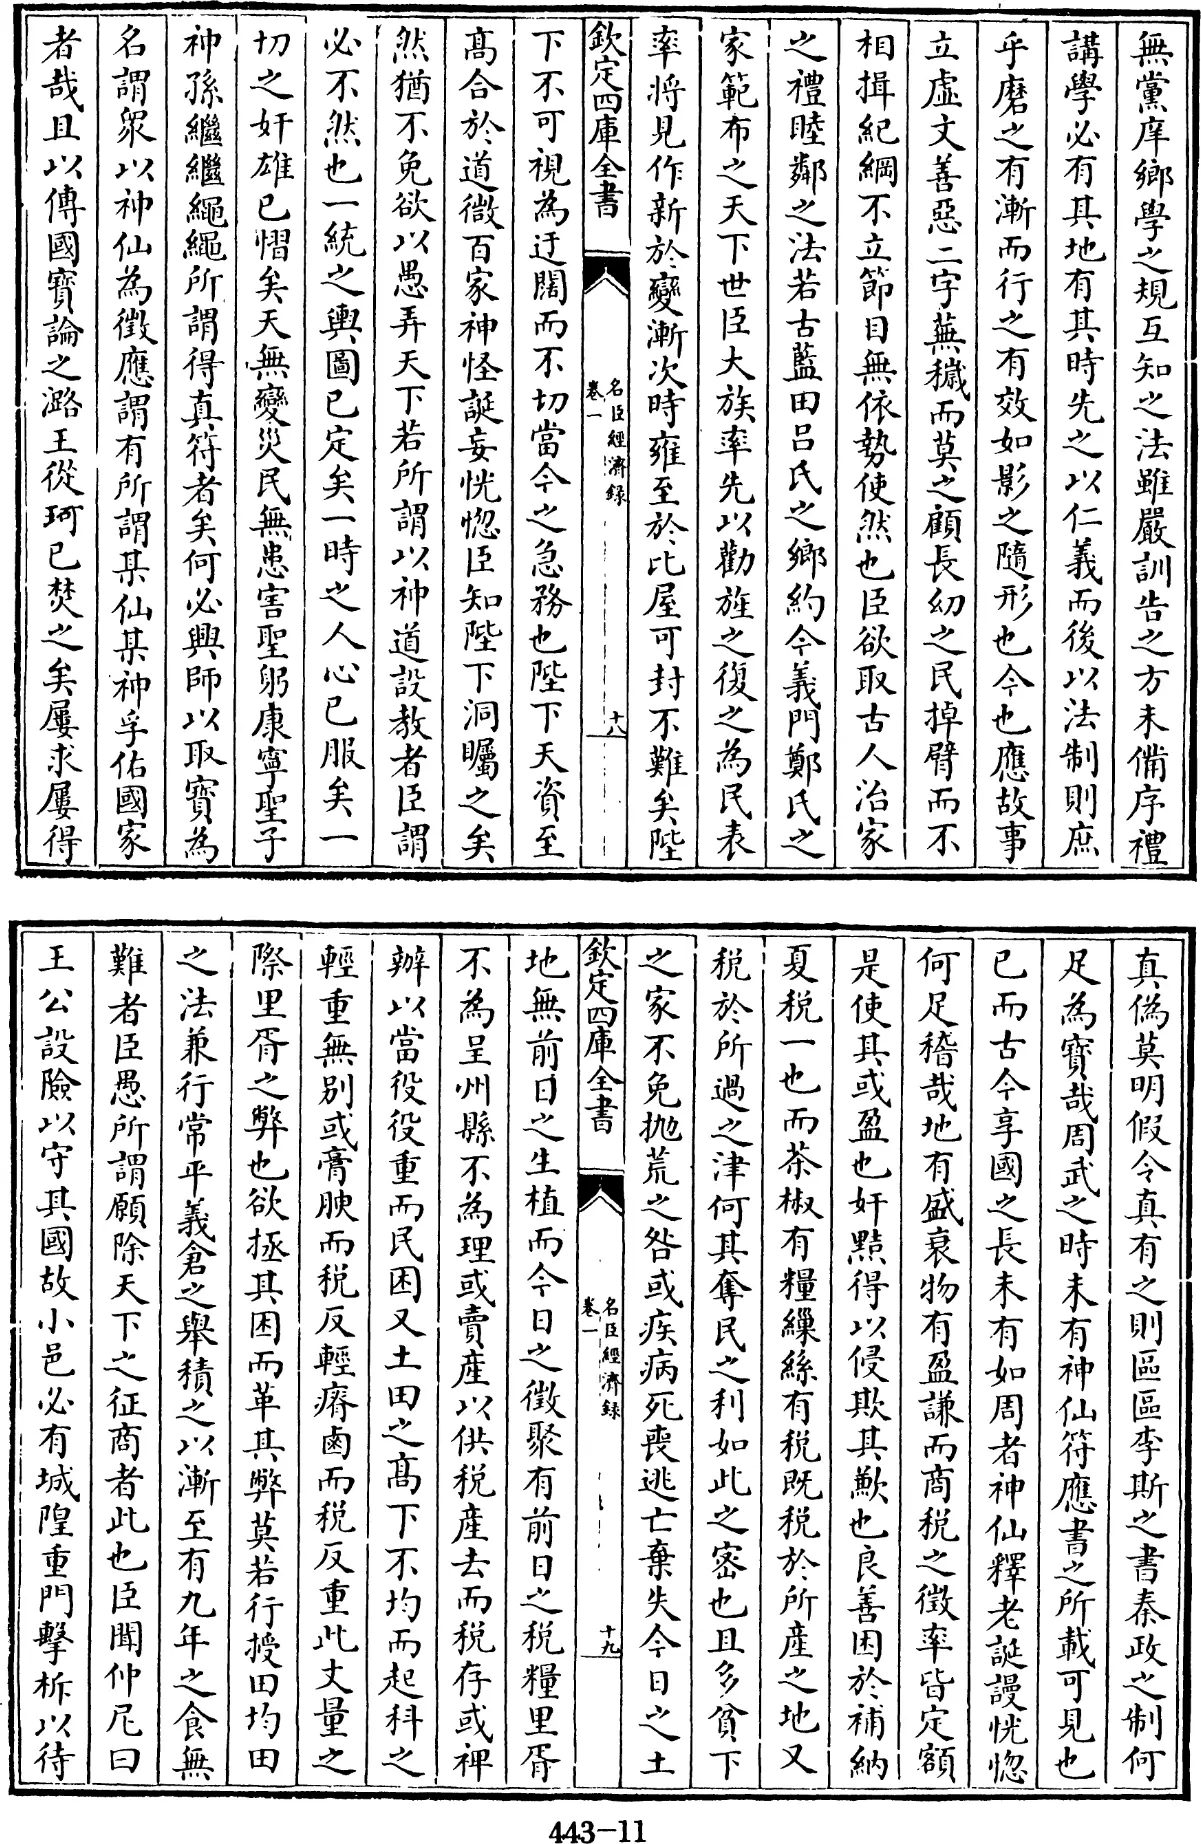 無黨庠鄉學之規互知之法雖嚴訓告之方未備序禮
講學必有其地有其時先之以仁義而後以法制則庶
乎磨之有漸而行之有效如影之隨形也今也應故事
立虛文善惡二字蕪穢而莫之顧長幼之民掉臂而不
相揖紀綱不立節目無依勢使然也臣欲取古人治家
之禮睦鄰之法若古藍田呂氏之鄉約今義門鄭氏之
家範布之天下世臣大族率先以勸旌之復之為民表
率將見作新於變漸次時雍至於比屋可封不難矣陛
欽定四庫全書
名臣經濟錄
卷一
十八
下不可視為迂闊而不切當今之急務也陛下天資至
高合於道微百家神怪誕妄恍惚臣知陛下洞矚之矣
然猶不免欲以愚弄天下若所謂以神道設教者臣謂
必不然也一統之輿圖已定矣一時之人心已服矣一
切之奸雄已慴矣天無變災民無患害聖躬康寧聖子
神孫繼繼繩繩所謂得真符者矣何必興師以取寳為
名謂衆以神仙為徵應謂有所謂某仙某神孚佑國家
者哉且以傳國寳論之潞王從珂已焚之矣屢求屢得
真偽莫明假令真有之則區區李斯之書秦政之制何
足為寳哉周武之時未有神仙符應書之所載可見也
已而古今享國之長未有如周者神仙釋老誕謾恍惚
何足稽哉地有盛衰物有盈謙而商稅之徵率皆定額
是使其或盈也奸黠得以侵欺其歉也良善困於補納
夏稅一也而茶椒有糧纙絲有稅既稅於所產之地又
稅於所過之津何其奪民之利如此之密也且多貧下
之家不免拋荒之咎或疾病死喪逃亡棄失今日之土
欽定四庫全書
名臣經濟錄
卷一
十九
地無前日之生植而今日之徵聚有前日之稅糧里胥
不為呈州縣不為理或賣產以供稅產去而稅存或裨
辦以當役役重而民困又土田之高下不均而起科之
輕重無别或膏腴而稅反輕瘠鹵而稅反重此丈量之
際里胥之弊也欲拯其困而革其弊莫若行授田均田
之法兼行常平義倉之舉積之以漸至有九年之食無
難者臣愚所謂願除天下之征商者此也臣聞仲尼曰
王公設險以守其國故小邑必有城隍重門擊柝以待
443-11